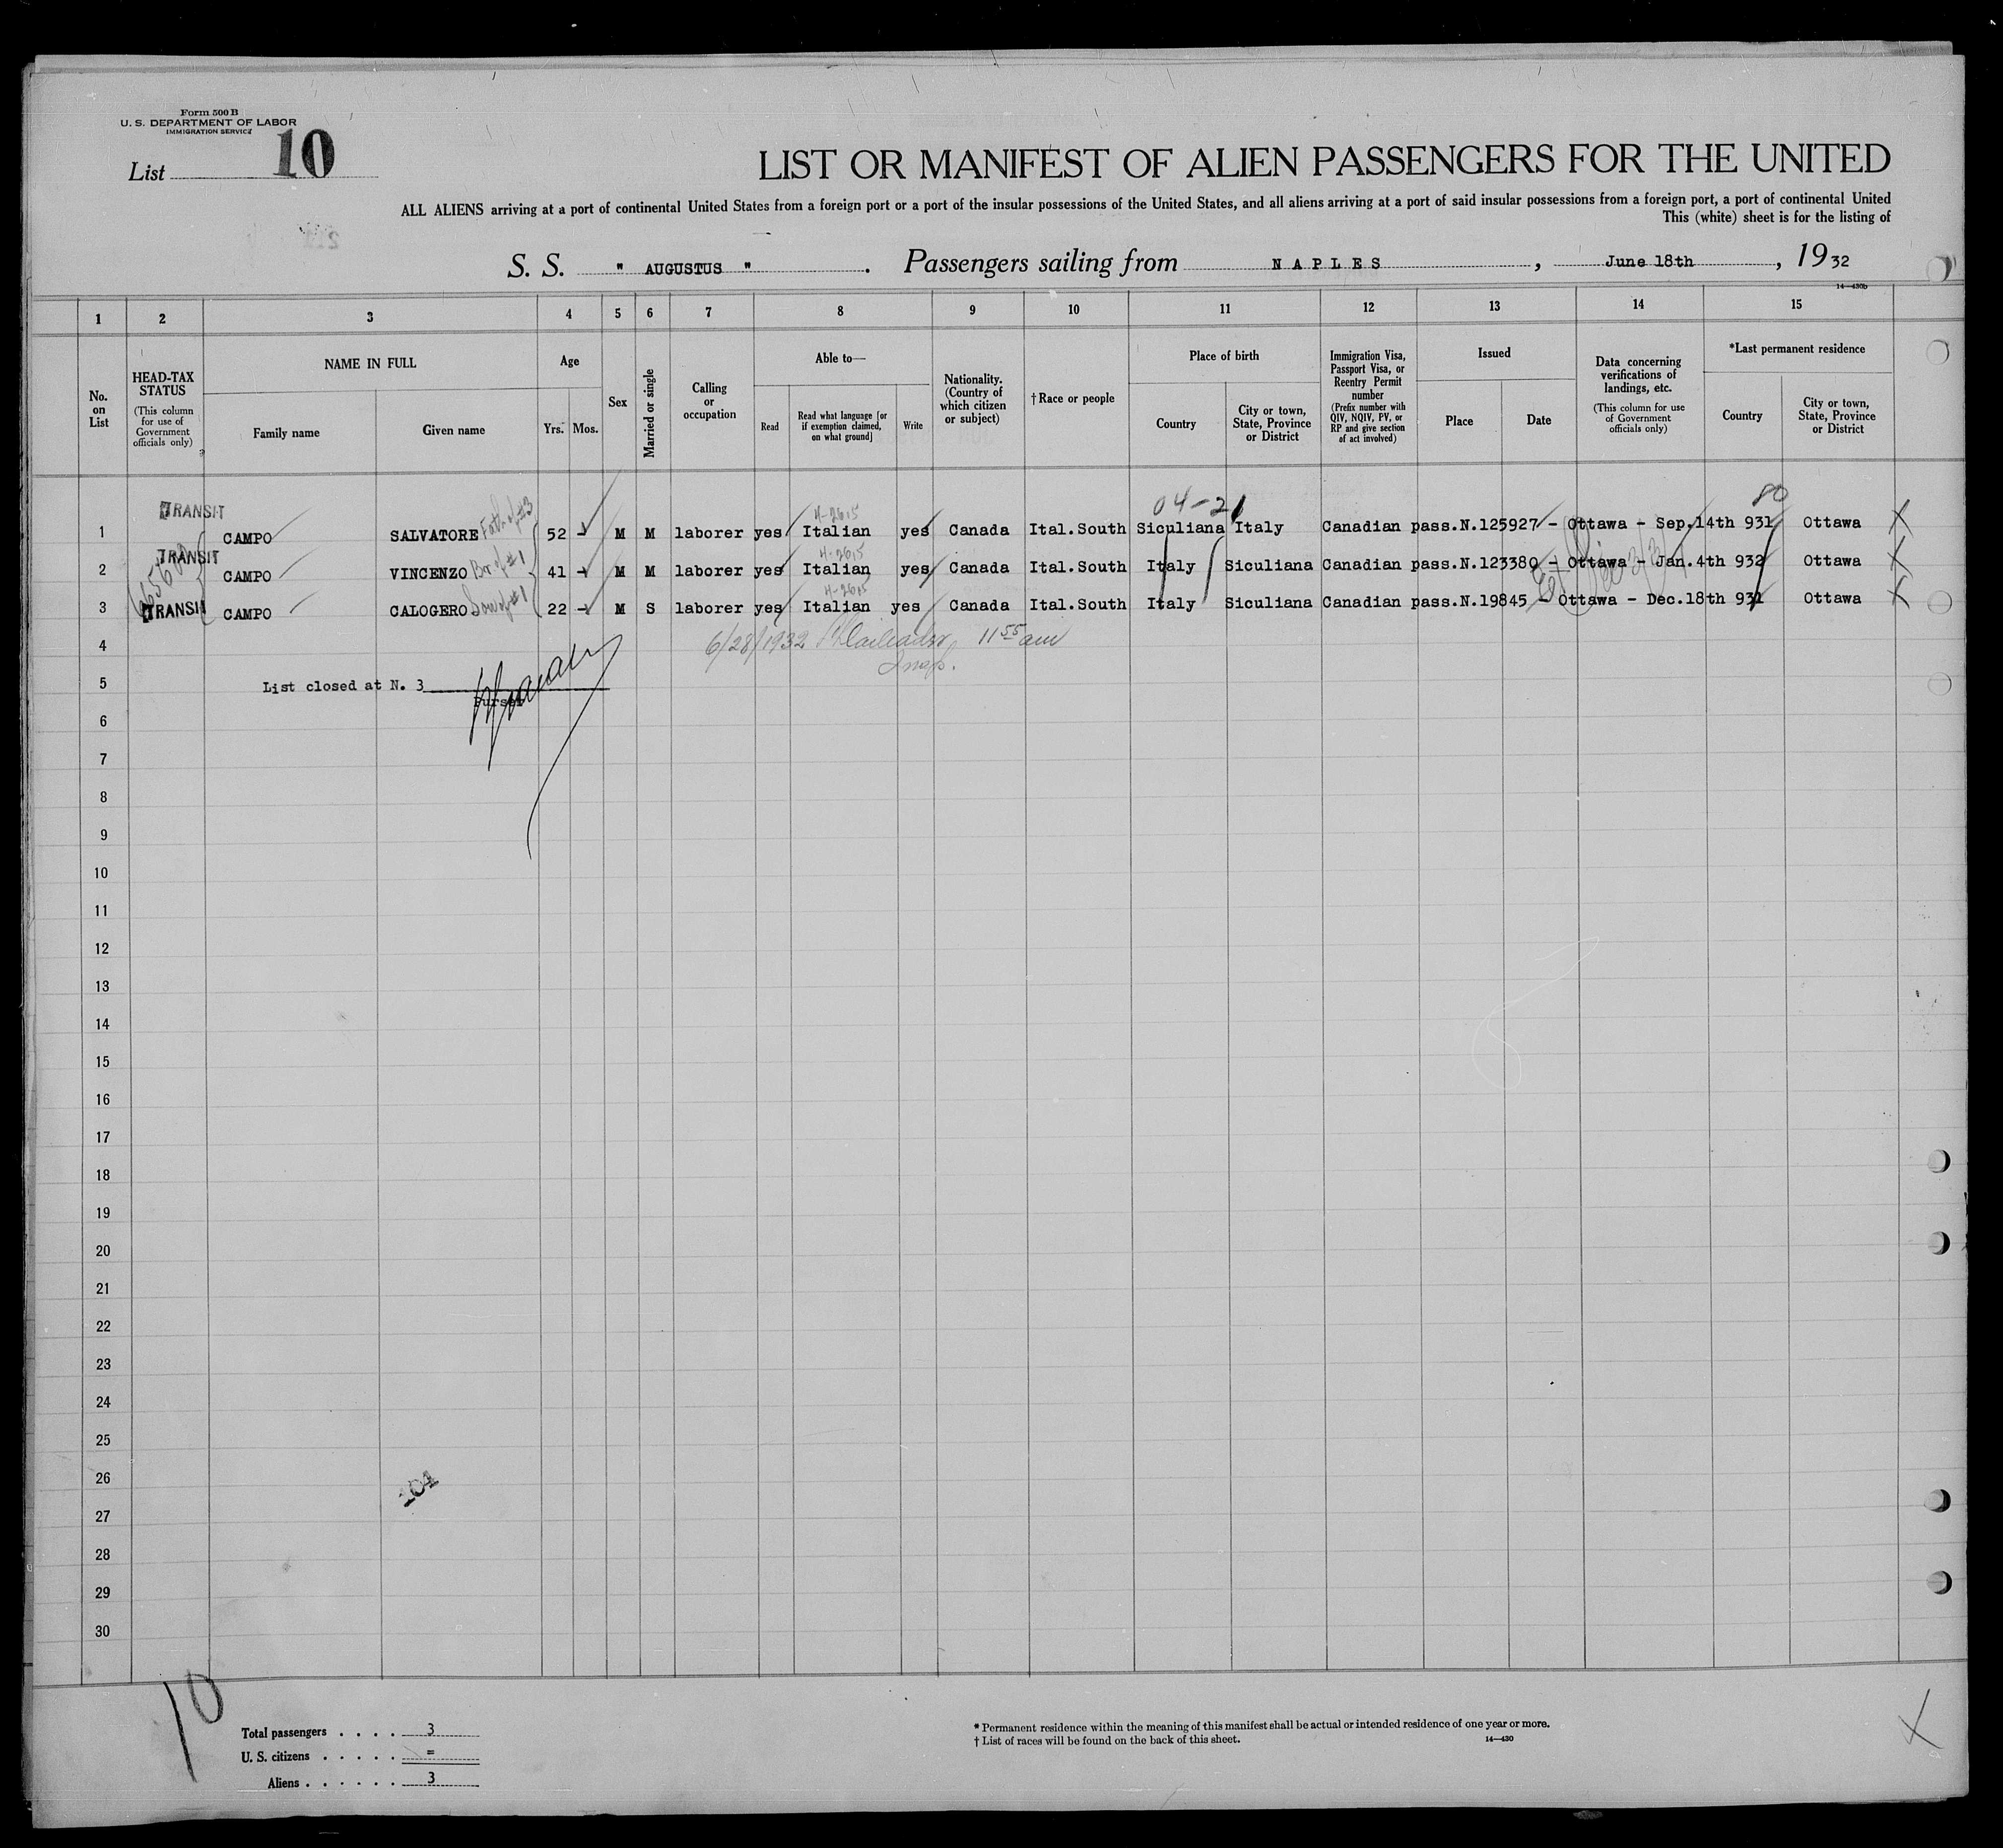 Form 500 B
U. S. DEPARTMENT OF LABOR
IMMIGRATION SERVICE
List 10
LIST OR MANIFEST OF ALIEN PASSENGERS FOR THE UNITED
ALL ALIENS arriving at a port of continental United States from a foreign port or a port of the insular possessions of the United States, and all aliens arriving at a port of said insular possessions from a foreign port, a port of continental United
This (white) sheet is for the listing of
S. S. " AUGUSTUS " . Passengers sailing from NAPLES , June 18th , 1932
14—430b
1 2 3 4 5 6 7 8 9 10 11 12 13 14 15
No. on List
HEAD-TAX STATUS (This column for use of Government officials only)
NAME IN FULL
Family name
Given name
Age
Yrs. Mos.
Sex
Married or single
Calling or occupation
Able to—
Read
Read what language [or if exemption claimed, on what ground]
Write
Nationality. (Country of which citizen or subject)
†Race or people
Place of birth
Country
City or town, State, Province or District
Immigration Visa, Passport Visa, or Reentry Permit number (Prefix number with QIV, NQIV, PV, or RP and give section of act involved)
Issued
Place
Date
Data concerning verifications of landings, etc. (This column for use of Government officials only)
*Last permanent residence
Country
City or town, State, Province or District
04-21 80
1 TRANSIT CAMPO SALVATORE Fath of #3 52 - M M laborer yes Italian yes Canada Ital.South Siculiana Italy Canadian pass.N.125927 - Ottawa - Sep.14th 931 Ottawa X
2 TRANSIT CAMPO VINCENZO Bro of #1 41 - M M laborer yes Italian yes Canada Ital.South Italy Siculiana Canadian pass.N.123380 - Ottawa - Jan.4th 932 Ottawa X
3 TRANSIT CAMPO CALOGERO Son of #1 22 - M S laborer yes Italian yes Canada Ital.South Italy Siculiana Canadian pass.N.19845 - Ottawa - Dec.18th 931 Ottawa X
4 6/28/1932 11 55 am
Insp.
5 List closed at N. 3
Purser
6
7
8
9
10
11
12
13
14
15
16
17
18
19
20
21
22
23
24
25
26
104
27
28
29
30
10
Total passengers . . . . 3
U. S. citizens . . . . . =
Aliens . . . . . . 3
* Permanent residence within the meaning of this manifest shall be actual or intended residence of one year or more.
† List of races will be found on the back of this sheet. 14—430
X